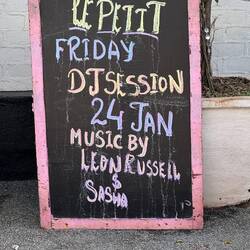 LE PETIT
FRIDAY
DJ SESSION
24 JAN
MUSIC BY
LEON RUSSELL
$
SASHA